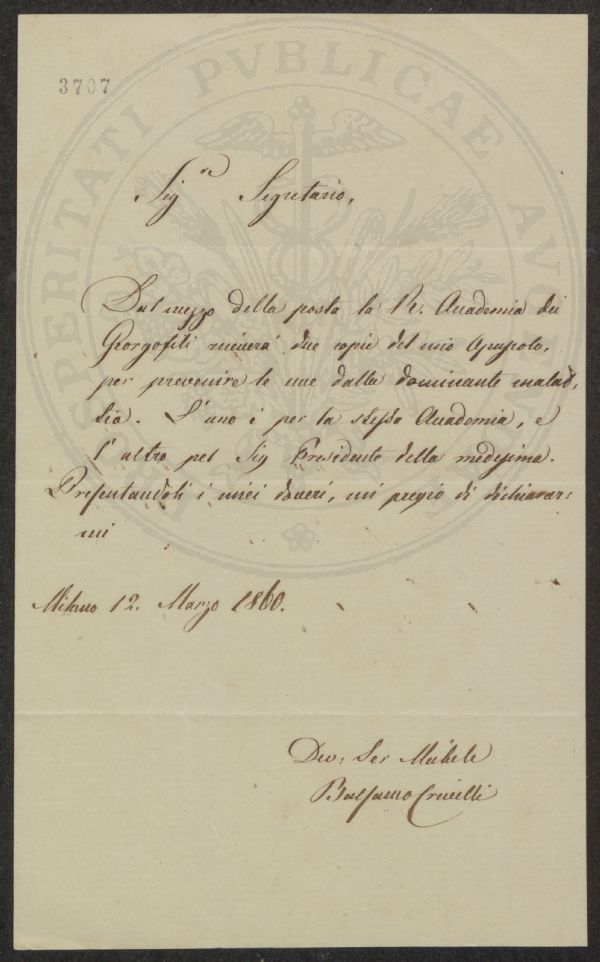 3707
PROSPERITATI PVBLICAE AVGENDAE
Sig.re Segretario,
Dal mezzo della posta la R. Accademia dei
Georgofili riceverà due copie del mio Opuscolo,
per prevenire le uve dalla dominante malat,
tia. L'uno è per la stessa Accademia, e
l'altro pel Sig Presidente della medesima.
Presentandoli i miei doveri, mi pregio di dichiarar=
mi
Milano 12. Marzo 1860.
Dev: Ser Michele
Balsamo Crivelli